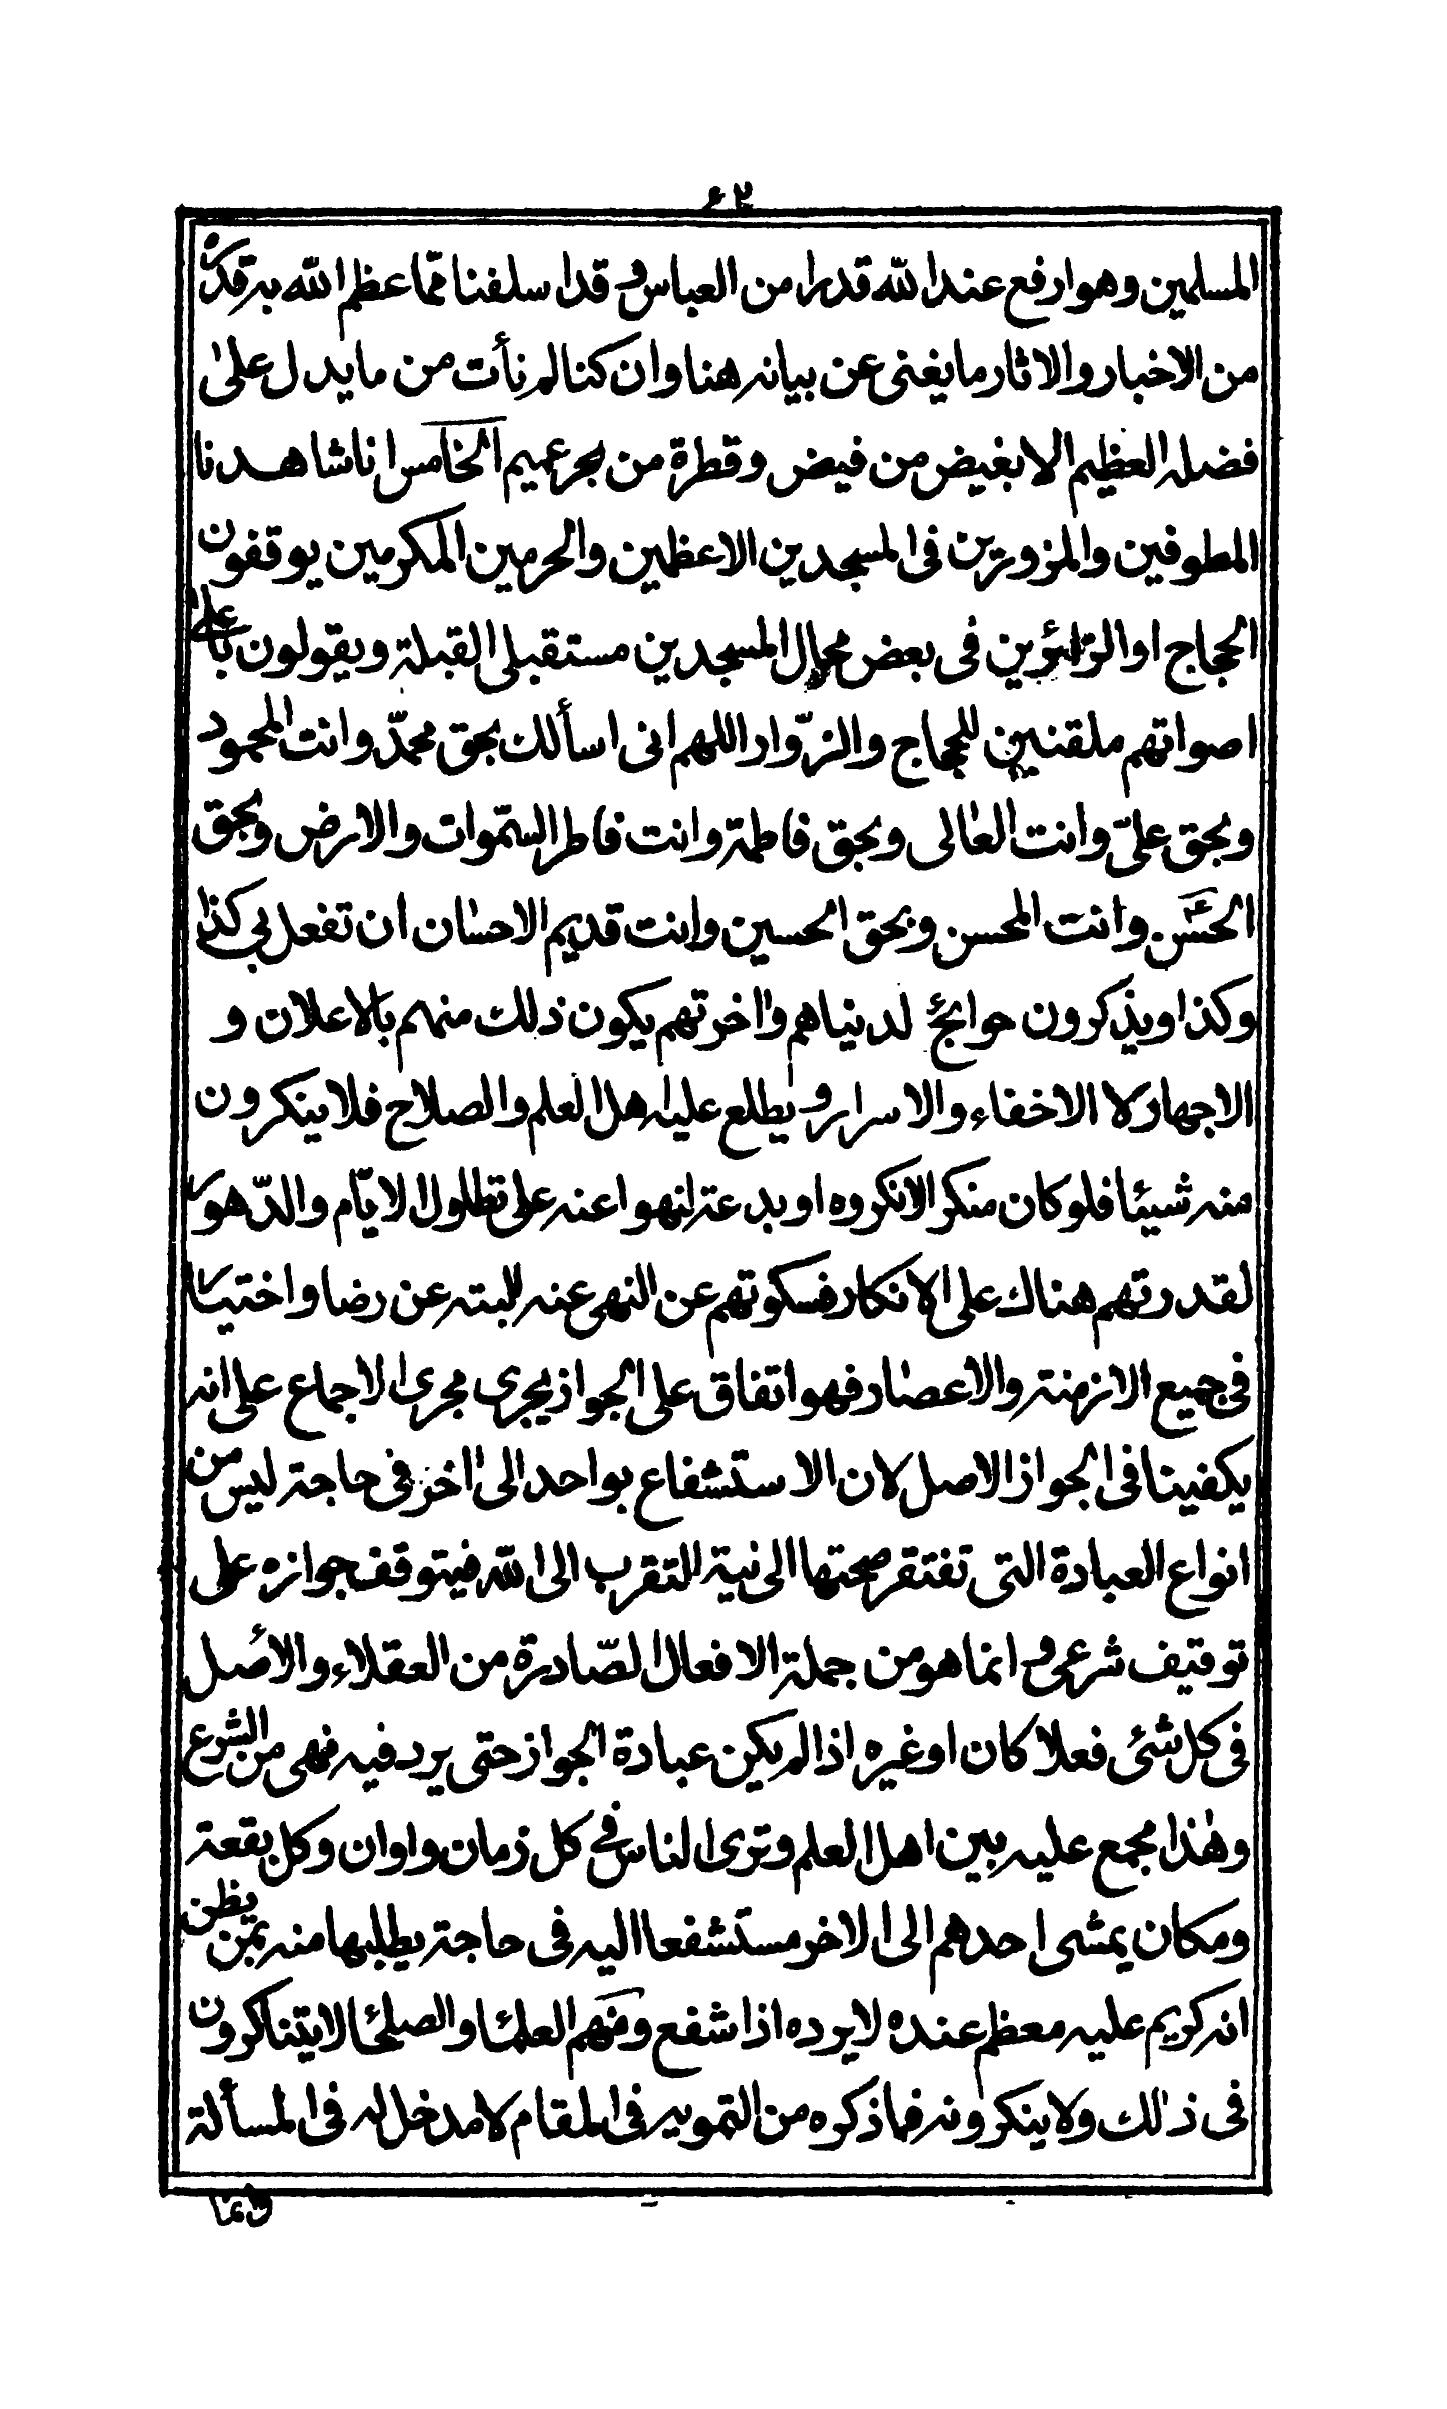 ٦٢
المسلمين وهو ارفع عند الله قدرا من العباس وقد اسلفنا مما عظم الله به قدره
من الاخبار والاثار ما يغنى عن بيانه هنا وان كنا لم نأت من ما يدل على
فضله العظيم الا بغيض من فيض وقطرة من بحر عميم الخامس انا شاهدنا
المطوفين والمزورين فى المسجدين الاعظمين والحرمين المكرمين يوقفون
الحجاج او الزائرين فى بعض محال المسجدين مستقبلى القبلة ويقولون باعلى
اصواتهم ملقنين للحجاج والزوّار اللهم انى اسألك بحق محمدّ وانت المحمود
وبحق علىّ وانت العالى وبحق فاطمة وانت فاطر السمّوات والارض وبحق
الحسن وانت المحسن وبحق الحسين وانت قديم الاحسان ان تفعل بى كذا
وكذا ويذكرون حوائج لدنياهم واخرتهم يكون ذلك منهم بالاعلان و
الاجهار لا الاخفاء والاسرار ويطلع عليه اهل العلم والصلاح فلا ينكرون
منه شيئا فلو كان منكر الانكروه او بدعة لنهوا عنه على تطاول الايّام والدّهور
لقدرتهم هناك على الانكار فسكوتهم عن النهى عنه البته عن رضا واختيار
فى جميع الازمنة والاعصار فهو اتفاق على الجواز يجرى مجرى الاجماع على انه
يكفينا فى الجواز الاصل لان الاستشفاع بواحد الى اخر فى حاجة ليس من
انواع العبادة التى تفتقر صحتها الى نية التقرب الى الله فيتوقف جوازه على
توقيف شرعى وانما هو من جملة الافعال الصّادرة من العقلاء والأصل
فى كل شئى فعلا كان او غيره اذا لم يكن عبادة الجواز حتى يرد فيه نهى من الشرع
وهٰذا مجمع عليه بين اهل العلم وترى الناس فى كل زمان واوان وكل بقعة
ومكان يمشى احدهم الى الاخر مستشفعا اليه فى حاجة يطلبها منه بمن يظن
انه كريم عليه معظم عنده لا يرده اذا شفع ومنهم العلمٔا والصلحٔا لا يتناكرون
فى ذٰلك ولا ينكرونه فما ذكره من التمويه فى المقام لا مدخل له فى المسألة
وانما